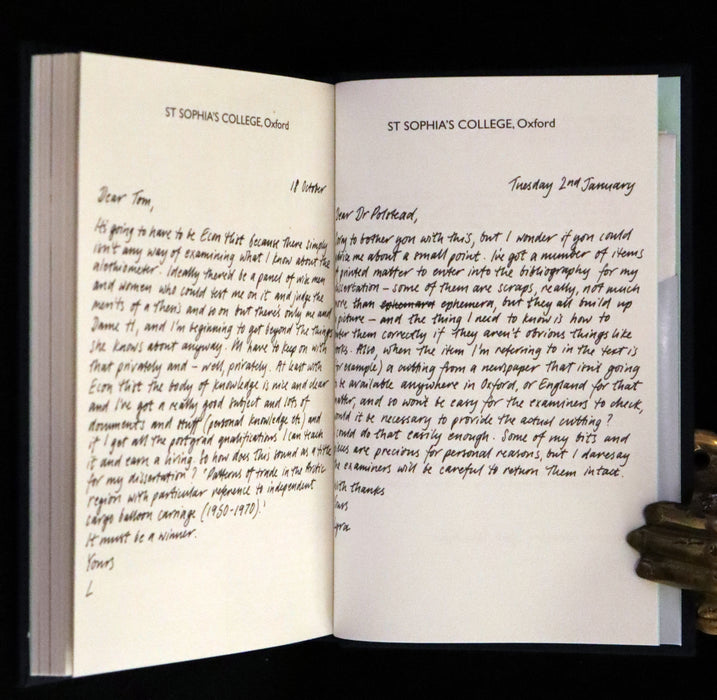 ST SOPHIA'S COLLEGE, Oxford
18 October
Dear Tom,
It's going to have to be Econ Hist because there simply
isn't any way of examining what I know about the
alethiometer. Ideally there'd be a panel of wise men
and women who could test me on it and judge the
merits of a thesis and so on but there's only me and
Dame H, and I'm beginning to get beyond the things
she knows about anyway. I'll have to keep on with
that privately and – well, privately. At least with
Econ Hist the body of knowledge is nice and clear
and I've got a really good subject and lots of
documents and stuff (personal knowledge etc) and
if I get all the postgrad qualifications I can teach
it and earn a living. So how does this sound as a title
for my dissertation? 'Patterns of trade in the Arctic
region with particular reference to independent
cargo balloon carriage (1950-1970).'
It must be a winner.
Yours
L
ST SOPHIA'S COLLEGE, Oxford
Tuesday 2nd January
Dear Dr Polstead,
to bother you with this, but I wonder if you could
me about a small point. I've got a number of items
printed matter to enter into the bibliography for my
– some of them are scraps, really, not much
than ephemera, but they all build up
picture – and the thing I need to know is how to
them correctly if they aren't obvious things like
Also, when the item I'm referring to in the text is
example) a cutting from a newspaper that isn't going
be available anywhere in Oxford, or England for that
and so won't be easy for the examiners to check,
it be necessary to provide the actual cutting?
could do that easily enough. Some of my bits and
are precious for personal reasons, but I daresay
examiners will be careful to return them intact.
thanks